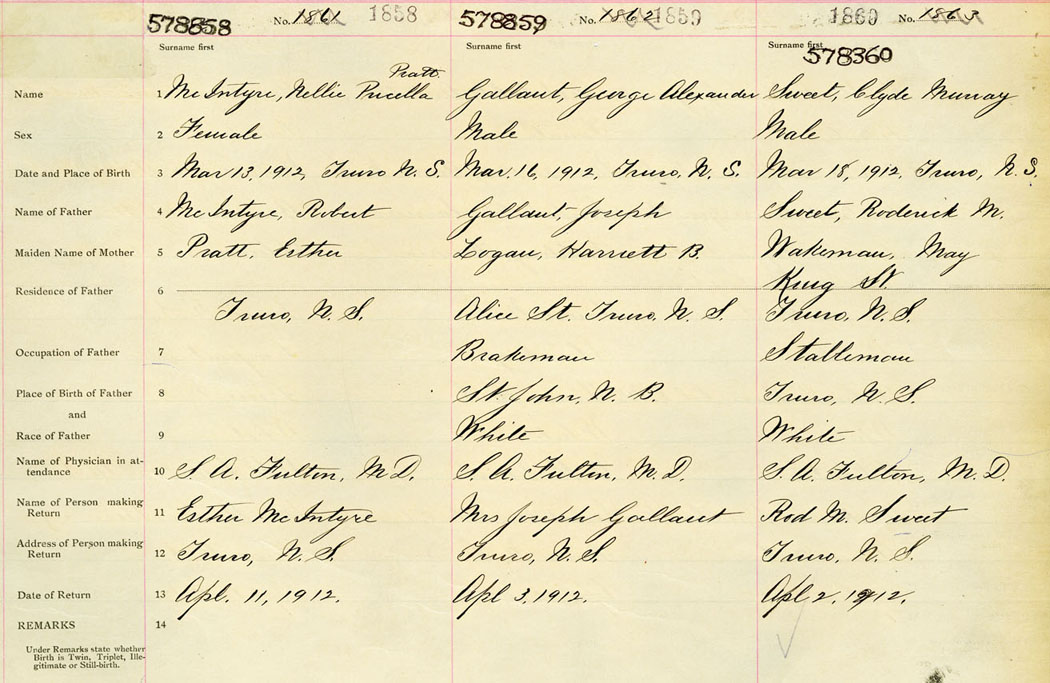 578858 No. 1861 1858 578859 No. 1862 1859 1860 No. 1863
Surname first Surname first Surname first
578360
Pratt
Name 1 McIntyre, Nellie Pucella Gallant, George Alexander Sweet, Clyde Murray
Sex 2 Female Male Male
Date and Place of Birth 3 Mar 13, 1912, Truro N. S. Mar. 16, 1912, Truro, N. S. Mar 18, 1912, Truro, N. S.
Name of Father 4 McIntyre, Robert Gallant, Joseph Sweet, Roderick M.
Maiden Name of Mother 5 Pratt, Esther Logan, Harriett B. Wakeman, May
King St.
Residence of Father 6 Truro, N. S. Alice St. Truro, N. S. Truro, N. S.
Occupation of Father 7 Brakeman Stableman
Place of Birth of Father 8 St. John, N. B. Truro, N. S.
and
Race of Father 9 White White
Name of Physician in at-
tendance 10 S. A. Fulton, M. D. S. A. Fulton, M. D. S. A. Fulton, M. D.
Name of Person making
Return 11 Esther McIntyre Mrs Joseph Gallant Rod M. Sweet
Address of Person making
Return 12 Truro, N. S. Truro, N. S. Truro, N. S.
Date of Return 13 Apl. 11, 1912. Apl 3, 1912. Apl 2, 1912.
REMARKS 14
Under Remarks state whether
Birth is Twin, Triplet, Ille-
gitimate or Still-birth.